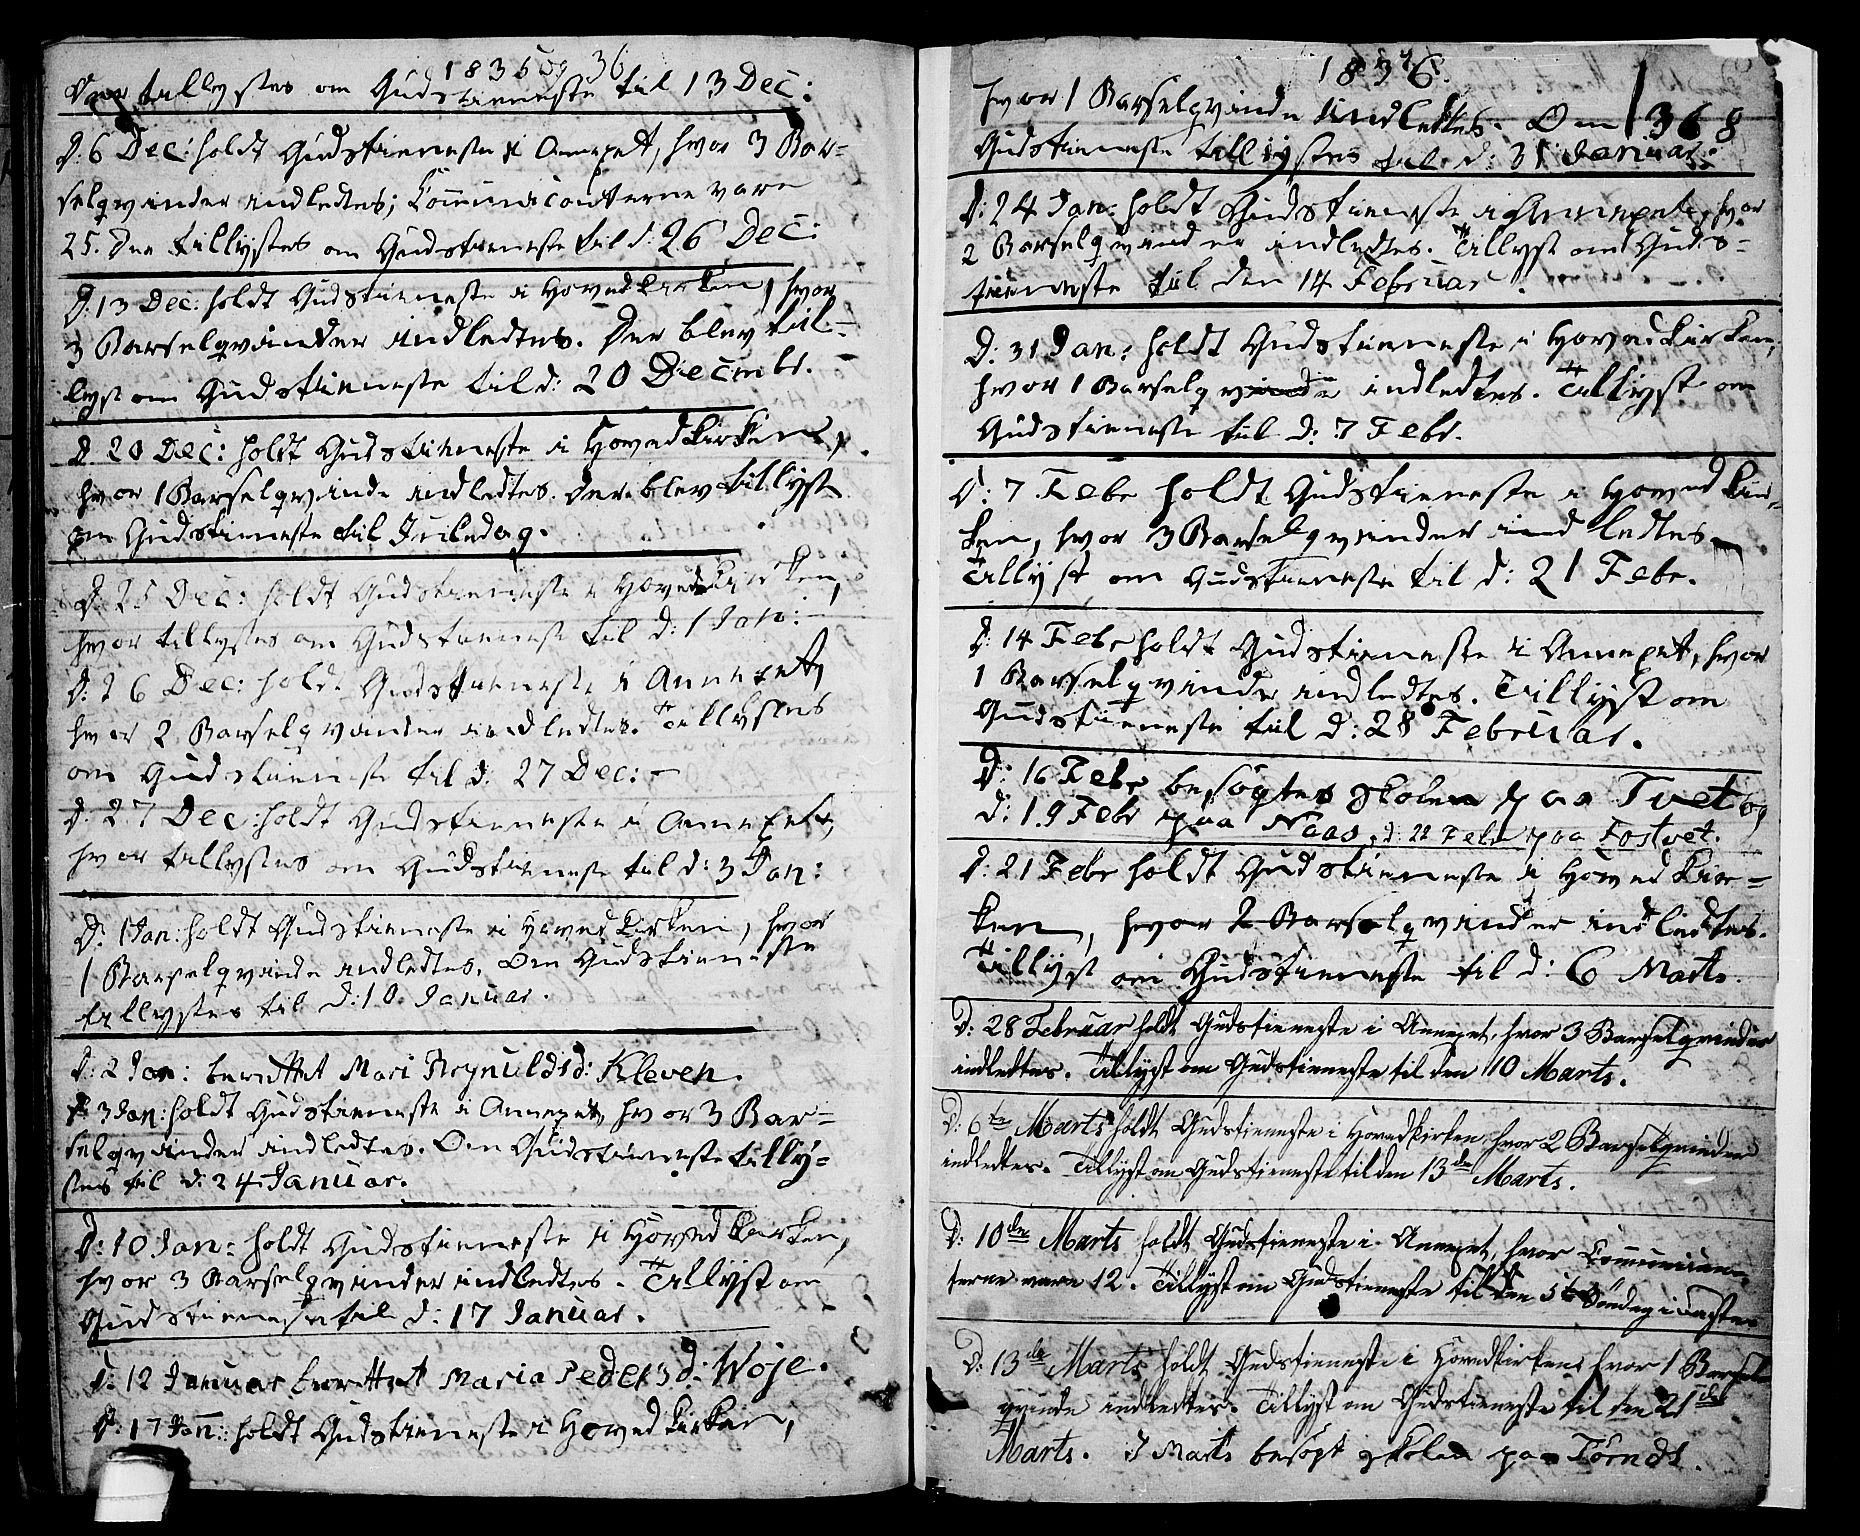 1835 og 36
Der tillystes om Gudstieneste til 13 Dec:
D: 6 Dec: holdt Gudstieneste i Annexet, hvor 3 Bar=
selqvinder indledtes; Communicanterne vare
25. Der tillystes om Gudstieneste til d: 26 Dec:
D: 13 Dec: holdt Gudstieneste i Hovedkirken, hvor
3 Barselqvinder indledtes. Der blev til=
lyst om Gudstieneste til d: 20 Decembr.
D. 20 Dec: holdt Gudstieneste i Hovedkirken,
hvor 1 Barselqvinde indledtes. Der blev tillyst
om Gudstieneste til Juledag.
D. 25 Dec: holdt Gudstieneste i Hovedkirken,
hvor tillystes om Gudstieneste til d: 1 Jan:
D: 26 Dec: holdt Gudstieneste i Annexet,
hvor 2 Barselqvinder indledtes. Tillystes
om Gudstieneste til d: 27 Dec:
D. 27 Dec: holdt Gudstieneste i Annexet,
hvor tillystes om Gudstieneste til d: 3 Jan:
D: 1 Jan: holdt Gudstieneste i Hovedkirken, hvor
1 Barselqvinde indledtes. Om Gudstieneste
tillystes til d: 10 Januar.
D: 2 Jan: berettet Mari Kleven.
D: 3 Jan: holdt Gudstieneste i Annexet, hvor 3 Bar=
selqvinder indledtes. Om Gudstieneste tilly=
stes til d: 24 Januar.
D: 10 Jan: holdt Gudstieneste i Hovedkirken,
hvor 3 Barselqvinder indledtes. Tillyst om
Gudstieneste til d: 17 Januar.
D: 12 Januar berettet Maria Pedersd: Woje.
D: 17 Jan: holdt Gudstieneste i Hovedkirken,
1836.
hvor 1 Barselqvinde indledtes. Om 368
Gudstieneste tillystes til d: 31 Januar.
D: 24 Jan: holdt Gudstieneste i Annexet, hvor
2 Barselqvinder indledtes. Tillyst om Guds=
tieneste til den 14 Februar.
D: 31 Jan: holdt Gudstieneste i Hovedkirken,
hvor 1 Barselqvinde indledtes. Tillyst om
Gudstieneste til d: 7 Febr.
D: 7 Febr holdt Gudstieneste i Hovedkir=
ken, hvor 3 Barselqvinder indledtes.
Tillyst om Gudstieneste til d: 21 Febr.
D: 14 Febr holdt Gudstieneste i Annexet, hvor
1 Barselqvinde indledtes. Tillyst om
Gudstieneste til d: 28 Februar.
D: 16 Febr besøgtes skolen paa Tvet og
d: 19 Febr paa Naas, d: 22 Febr paa Fostvet.
D: 21 Febr holdt Gudstieneste i Hovedkir=
ken, hvor 2 Barselqvinder indledtes.
Tillyst om Gudstieneste til d: 6 Marts.
D: 28 Februar holdt Gudstieneste i Annexet, hvor 3 Barselqvinder
indledtes. Tillyst om Gudstieneste til den 10 Marts.
D: 6te Marts holdt Gudstieneste i Hovedkirken, hvor 2 Barselqvinder
indledtes. Tillyst om Gudstieneste til den 13de Marts.
D: 10de Marts holdt Gudstieneste i Annexet, hvor Communican=
terne vare 12. Tillyst om Gudstieneste til den 5te Søndag i Fasten
D: 13de Marts holdt Gudstieneste i Hovedkirken hvor 1 Barsel
qvinde indledtes. Tillyst om Gudstieneste til den 21de
Marts. 7 Marts besøgt skolen paa